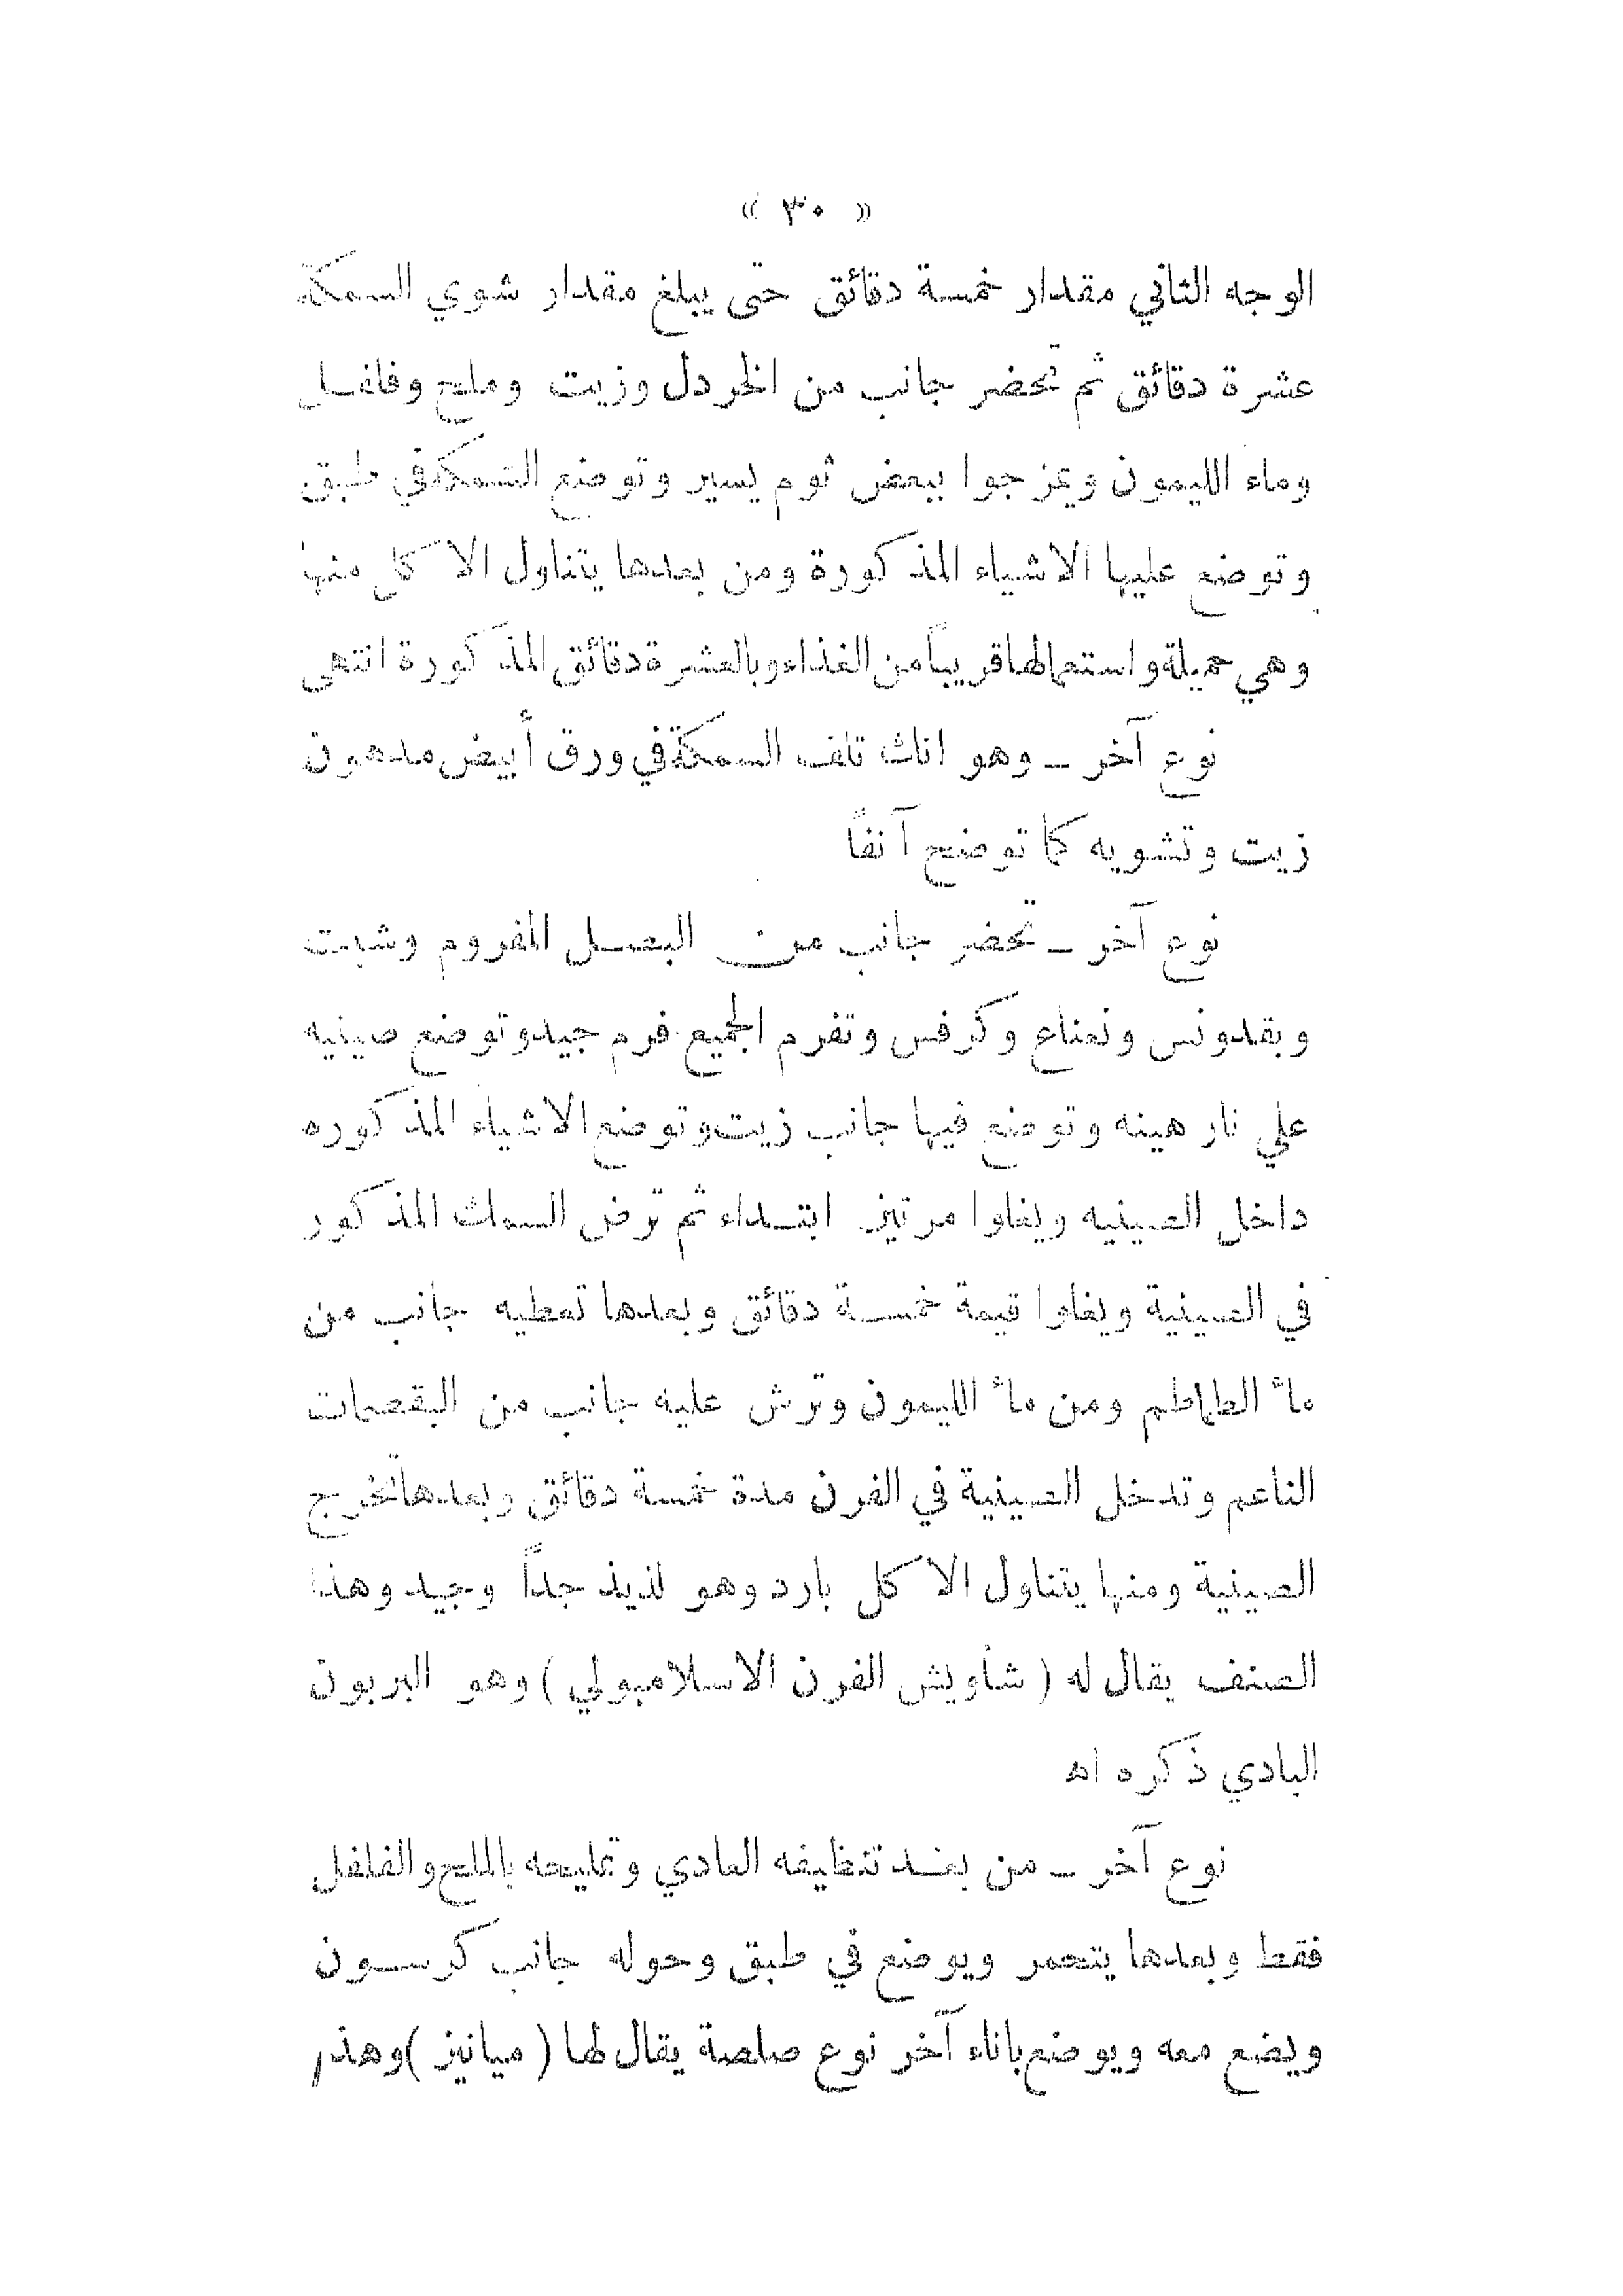 « ٣٠ »
الوجه الثاني مقدار خمسة دقائق حتى يبلغ مقدار شوي السمكة
عشرة دقائق ثم تحضر جانب من الخردل وزيت وملح وفلفل
وماء الليمون ويمزجوا ببعض ثوم يسير وتوضع السمكة في طبق
وتوضع عليها الاشياء المذكورة ومن بعدها يتناول الاكل منها
وهي جميلة واستعمالها قريباً من الغذاء وبالعشرة دقائق المذكورة انتهى
نوع آخر ــ وهو انك تلف السمكة في ورق أبيض مدهون
زيت وتشويه كما توضح آنفاً
نوع آخر ــ تحضر جانب من البصل المفروم وشبت
وبقدونس ونعناع وكرفس وتفرم الجميع فرم جيد وتوضع صينيه
علي نار هينه وتوضع فيها جانب زيت وتوضع الاشياء المذكوره
داخل الصينيه ويغلوا مرتين ابتداء ثم ترص السمك المذكور
في الصينية ويغلوا قيمة خمسة دقائق وبعدها تعطيه جانب من
مأ الطماطم ومن مأ الليمون وترش عليه جانب من البقصمات
الناعم وتدخل الصينية في الفرن مدة خمسة دقائق وبعدها تخرج
الصينية ومنها يتناول الاكل بارد وهو لذيذ جداً وجيد وهذا
الصنف يقال له ( شاويش الفرن الاسلامبولي ) وهو البربون
البادي ذكره اه
نوع آخر ــ من بعد تنظيفه العادي وتمليحه بالملح والفلفل
فقط وبعدها يتحمر ويوضع في طبق وحوله جانب كرسون
ويضع معه ويوضع باناء آخر نوع صلصة يقال لها ( ميانيز ) وهذه